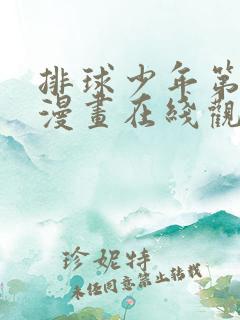 排球少年第
漫畫在綫觀
珍妮特
未经同意禁止转载